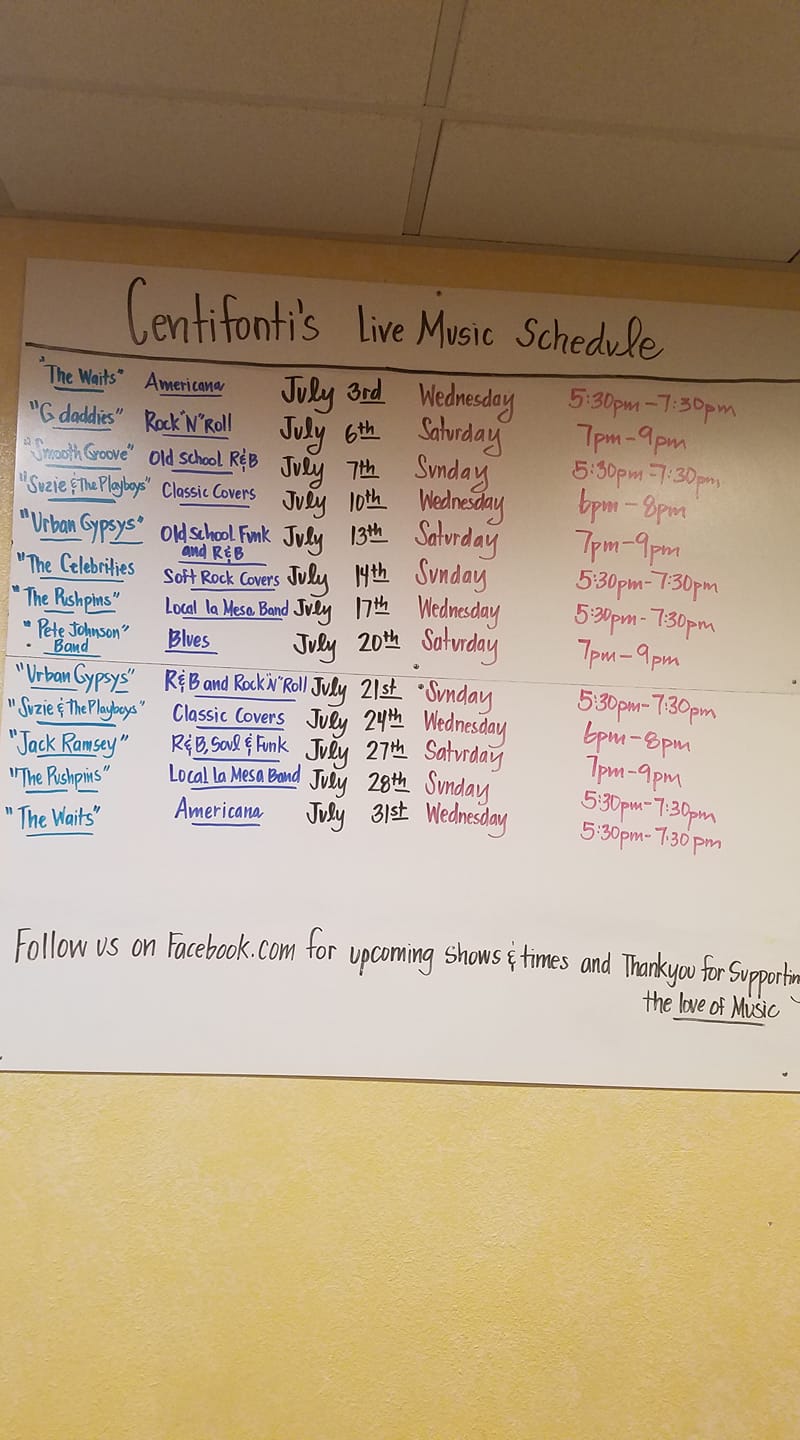 Centifonti's Live Music Schedule
"The Waits" Americana July 3rd Wednesday 5:30pm-7:30pm
"G daddies" Rock "N" Roll July 6th Saturday 7pm-9pm
"Smooth Groove" Old School R&B July 7th Sunday 5:30pm-7:30pm
"Suzie & The Playboys" Classic Covers July 10th Wednesday 6pm-8pm
"Urban Gypsys" Old School Funk and R&B July 13th Saturday 7pm-9pm
"The Celebrities Soft Rock Covers July 14th Sunday 5:30pm-7:30pm
"The Pushpins" Local la Mesa Band July 17th Wednesday 5:30pm-7:30pm
"Pete Johnson" Band Blues July 20th Saturday 7pm-9pm
"Urban Gypsys" R&B and Rock "N" Roll July 21st Sunday 5:30pm-7:30pm
"Suzie & The Playboys" Classic Covers July 24th Wednesday 6pm-8pm
"Jack Ramsey" R&B, Soul & Funk July 27th Saturday 7pm-9pm
"The Pushpins" Local la Mesa Band July 28th Sunday 5:30pm-7:30pm
"The Waits" Americana July 31st Wednesday 5:30pm-7:30pm
Follow us on Facebook.com for upcoming Shows & times and Thankyou for Supportin
the love of Music